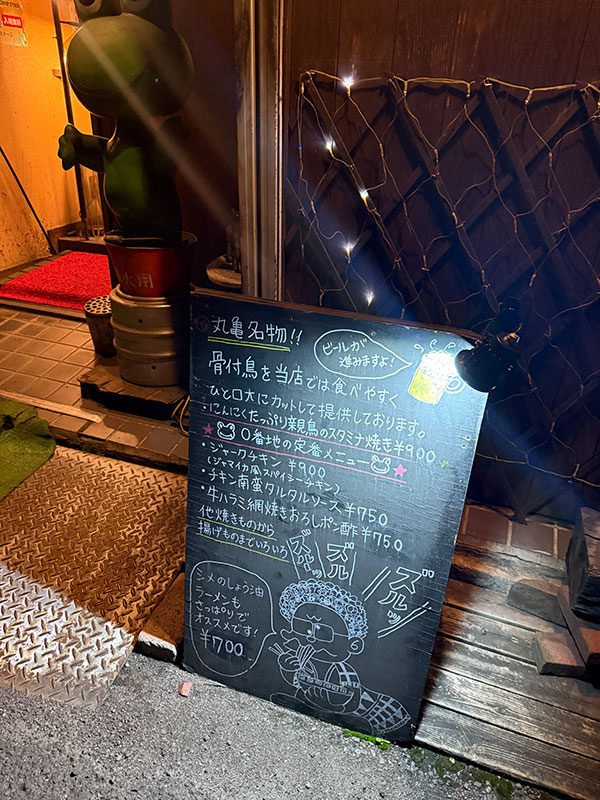 入場無料
火用
丸亀名物!!
ビールが
進みますよ!
骨付鳥を当店では食べやすく
ひと口大にカットして提供しております。
・にんにくたっぷり親鳥のスタミナ焼き¥900
★ 0番地の定番メニュー ★
・ジャークチキン ¥900
(ジャマイカ風スパイシーチキン)
・チキン南蛮タルタルソース ¥750
・牛ハラミ網焼きおろしポン酢 ¥750
他焼きものから
揚げものまでいろいろ
ズルッ
ズル
ズルッ
シメのしょう油
ラーメンも
さっぱりで
オススメです!
¥700